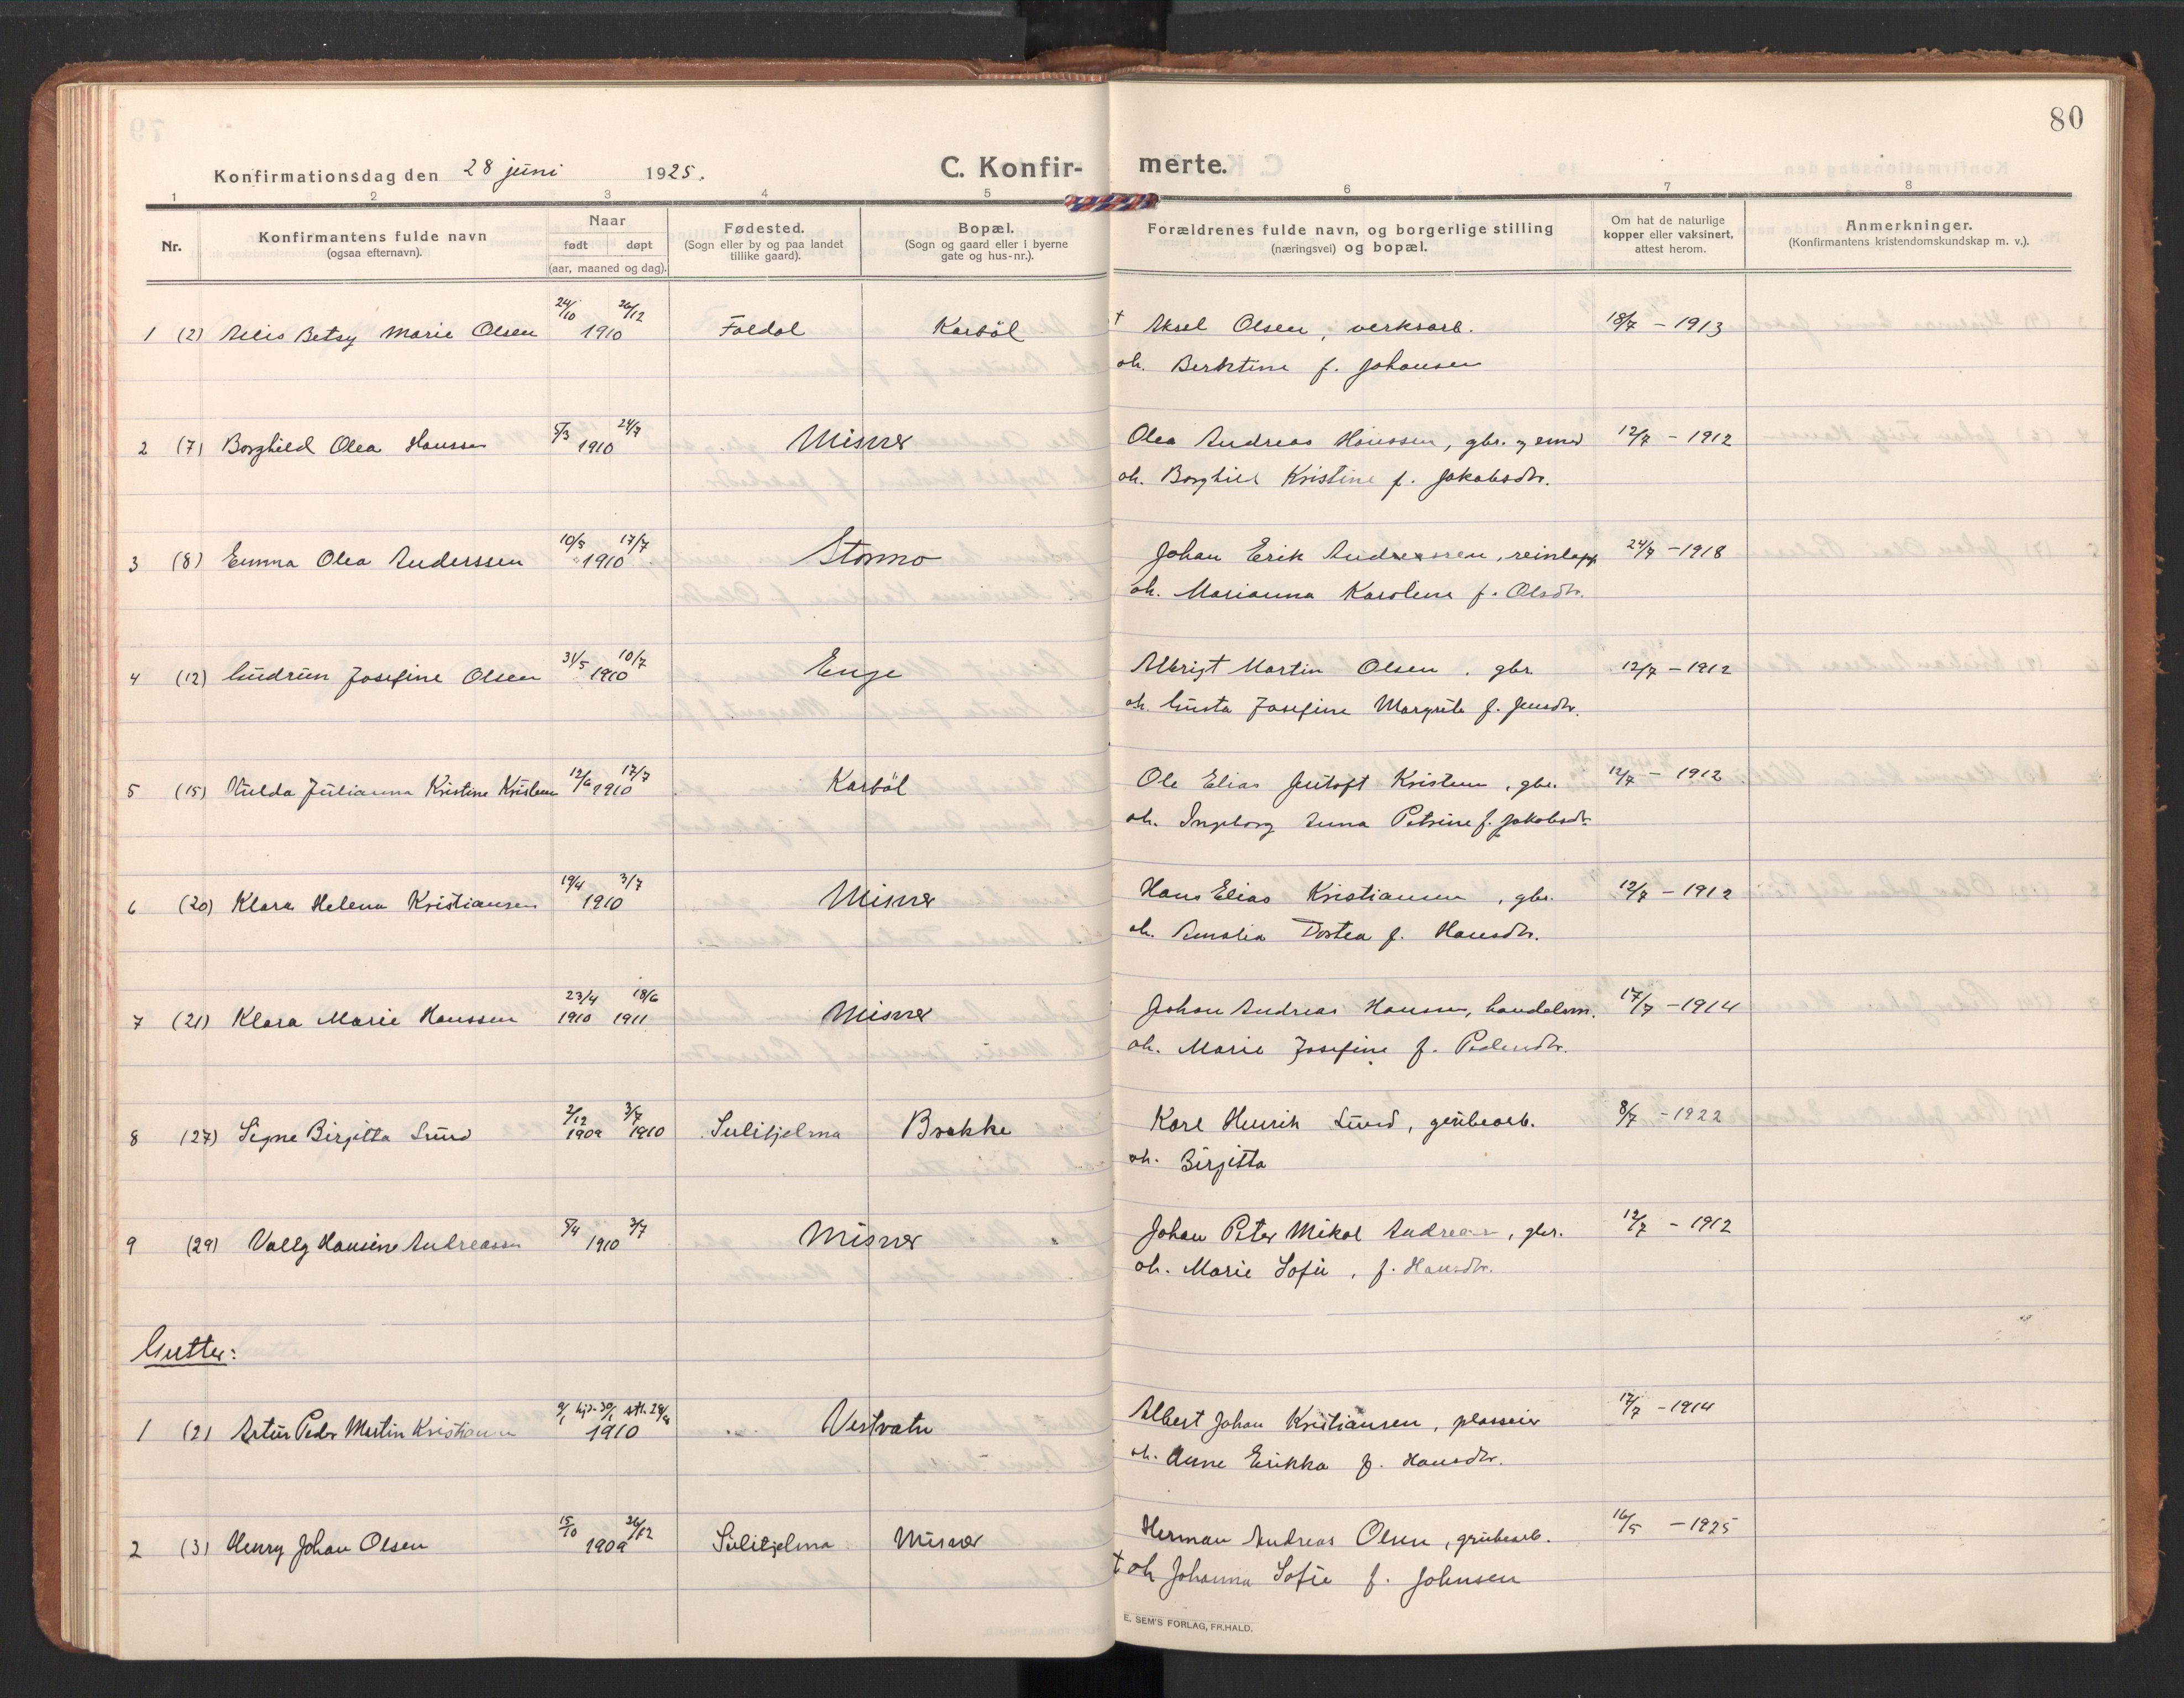 80
Konfirmationsdag den 28 juni 1925.
C. Konfir-merte.
1 2 3 4 5 6 7 8
Nr.
Konfirmantens fulde navn
(ogsaa efternavn).
Naar
født døpt
(aar, maaned og dag).
Fødested.
(Sogn eller by og paa landet
tillike gaard).
Bopæl.
(Sogn og gaard eller i byerne
gate og hus-nr.).
Forældrenes fulde navn, og borgerlige stilling
(næringsvei) og bopæl.
Om hat de naturlige
kopper eller vaksinert,
attest herom.
Anmerkninger.
(Konfirmantens kristendomskundskap m. v.).
24/10 26/12
1 (2) Betsy Marie Olsen 1910 Karböl † Aksel Olsen, verksarb. 18/7 - 1913
oh. f. Johansen
5/3 24/7
2 (7) Borghild Olea Hanssen 1910 Misvær Olea Andreas Hanssen, gbr. 12/7 - 1912
oh. Borghild Kristine f. Jakobsdtr.
10/5 17/7
3 (8) Emma Olea Anderssen 1910 Stormo Johan Erik, reinlapp 24/7 - 1918
oh. Marianna Karoline f. Olsdtr.
31/5 10/7
4 (12) Gudrun Josefine Olsen 1910 Enge Albrigt Martin Olsen, gbr. 12/7 - 1912
oh. Gusta Josefine Margrete f. Jensdtr.
12/6 17/7
5 (15) Hulda Julianna Kristine 1910 Karböl Ole Elias Jentoft, gbr. 12/7 - 1912
oh. Ingeborg Anna Petrine f. Jakobsdtr.
19/4 3/7
6 (20) Klara Helena Kristiansen 1910 Misvær Hans Elias Kristiansen, gbr. 12/7 - 1912
oh. Amalia Dortea f. Hansdtr.
23/4 18/6
7 (21) Klara Marie Hanssen 1910 1911 Misvær Johan Andreas Hanssen, handelsm. 17/7 - 1914
oh. Marie Josefine f. Pedersdtr.
2/12 3/7
8 (27) Signe Birgitta Lund 1909 1910 Sulitjelma Bakke Karl Henrik Lund, grubearb. 8/7 - 1922
oh. Birgitta
5/4 3/7
9 (29) Vally Hansine Andreassen 1910 Misvær " Johan Peter Mikal Andreassen, gbr. 12/7 - 1912
oh. Marie Sofie, f. Hansdtr.
Gutter:
9/1 hjd. 30/1 stf. 29/4
1 (2) Artur Peder Martin Kristiansen 1910 Vestvatn Albert Johan Kristiansen, plasseier 17/7 - 1914
oh. Anne Erikka f. Hansdtr.
15/10 26/12
2 (3) Henry Johan Olsen 1909 Sulitjelma Misvær Herman Andreas Olsen, grubearb. 16/5 - 1925
† oh Johanna Sofie f. Johnsen
E. SEM'S FORLAG, FR.HALD.